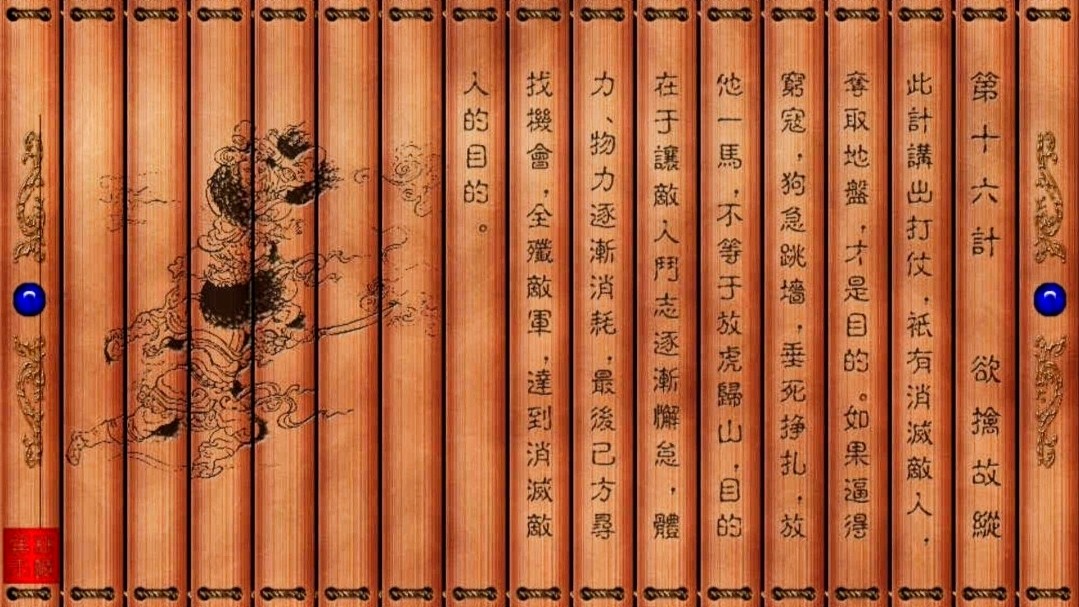 第十六計 欲擒故縱
此計講出打仗，祇有消滅敵人，
奪取地盤，才是目的。如果逼得
窮寇，狗急跳墻，垂死掙扎，放
他一馬，不等于放虎歸山，目的
在于讓敵人鬥志逐漸懈怠，體
力、物力逐漸消耗，最後己方尋
找機會，全殲敵軍，達到消滅敵
人的目的。